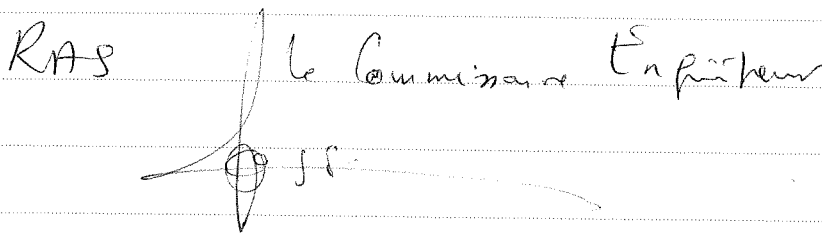 RAS le Commissaire Enquêteur